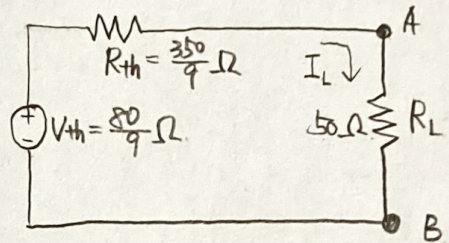 A
Rth = 350/9 Ω
IL
Vth = 80/9 Ω
50Ω
RL
B